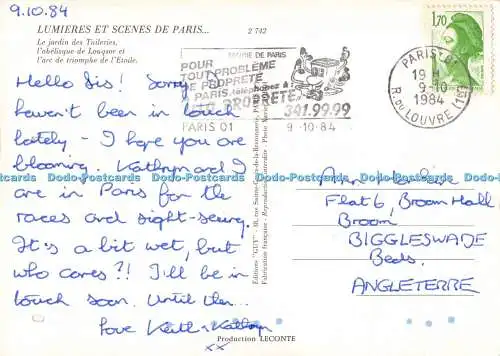 9.10.84
LUMIERES ET SCENES DE PARIS...
2 742
Le jardin des Tuileries,
l'obélisque de Louqsor et
l'arc de triomphe de l'Etoile.
MAIRIE DE PARIS
POUR
TOUT PROBLÈME
DE PROPRETÉ
PARIS, téléphonez à:
PROPRETÉ
341.99.99
PARIS 01
9-10-84
1,70
PARIS 01
19 H
9-10
1984
R. DU LOUVRE (1er)
Hello Sis! Sorry I
haven't been in touch
lately - I hope you are
blooming. Kathryn and I
are in Paris for the
races and sight-seeing.
It's a bit wet, but
who cares?! I'll be in
touch soon. Until then...
Love Keith & Kathryn
xx
Ann
Flat 6, Broom Hall
Broom
BIGGLESWADE
Beds.
ANGLETERRE
Editions "GUY"
Fabrication française - Reproduction interdite
Production LECONTE
Dodo-Postcards Dodo-Postcards Dodo-Postcards Dodo-Postcards Dodo-Postcards